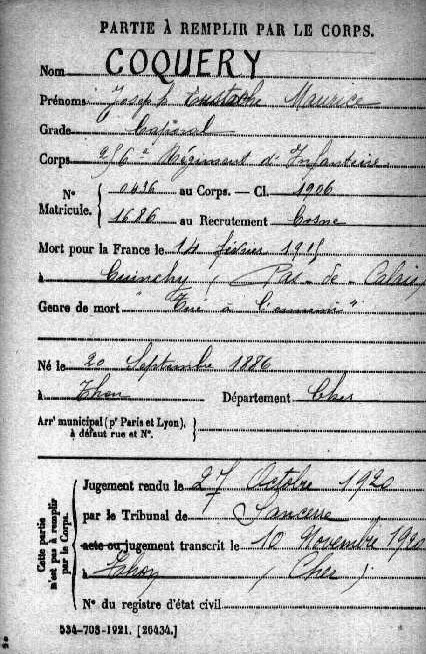 PARTIE À REMPLIR PAR LE CORPS.
Nom COQUERY
Prénoms Joseph Eustache Maurice
Grade Caporal
Corps 256e Régiment d'Infanterie
N° Matricule. { 0436 au Corps. — Cl. 1906
1686 au Recrutement Cosne
Mort pour la France le 14 février 1915
à Cuinchy (Pas-de-Calais)
Genre de mort "Tué à l'ennemi"
Né le 20 Septembre 1886
à Thou Département Cher
Arrt municipal (pr Paris et Lyon), à défaut rue et N°. {
Cette partie n'est pas à remplir par le Corps.
Jugement rendu le 27 Octobre 1920
par le Tribunal de Sancerre
acte ou jugement transcrit le 10 Novembre 1920
à Thou (Cher)
N° du registre d'état civil
534-708-1921. [26434.]